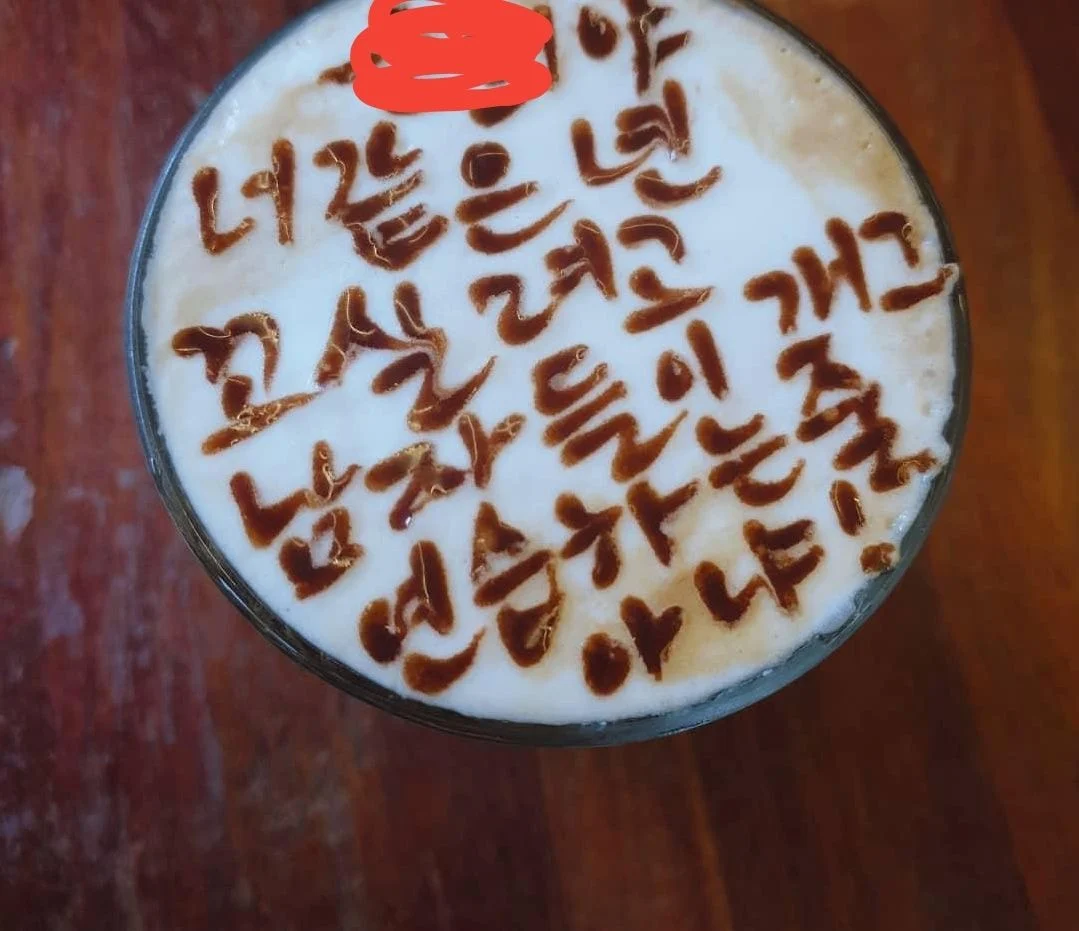 야
너같은 년
꼬실려고
남자들이 개그
연습하는줄
아냐!